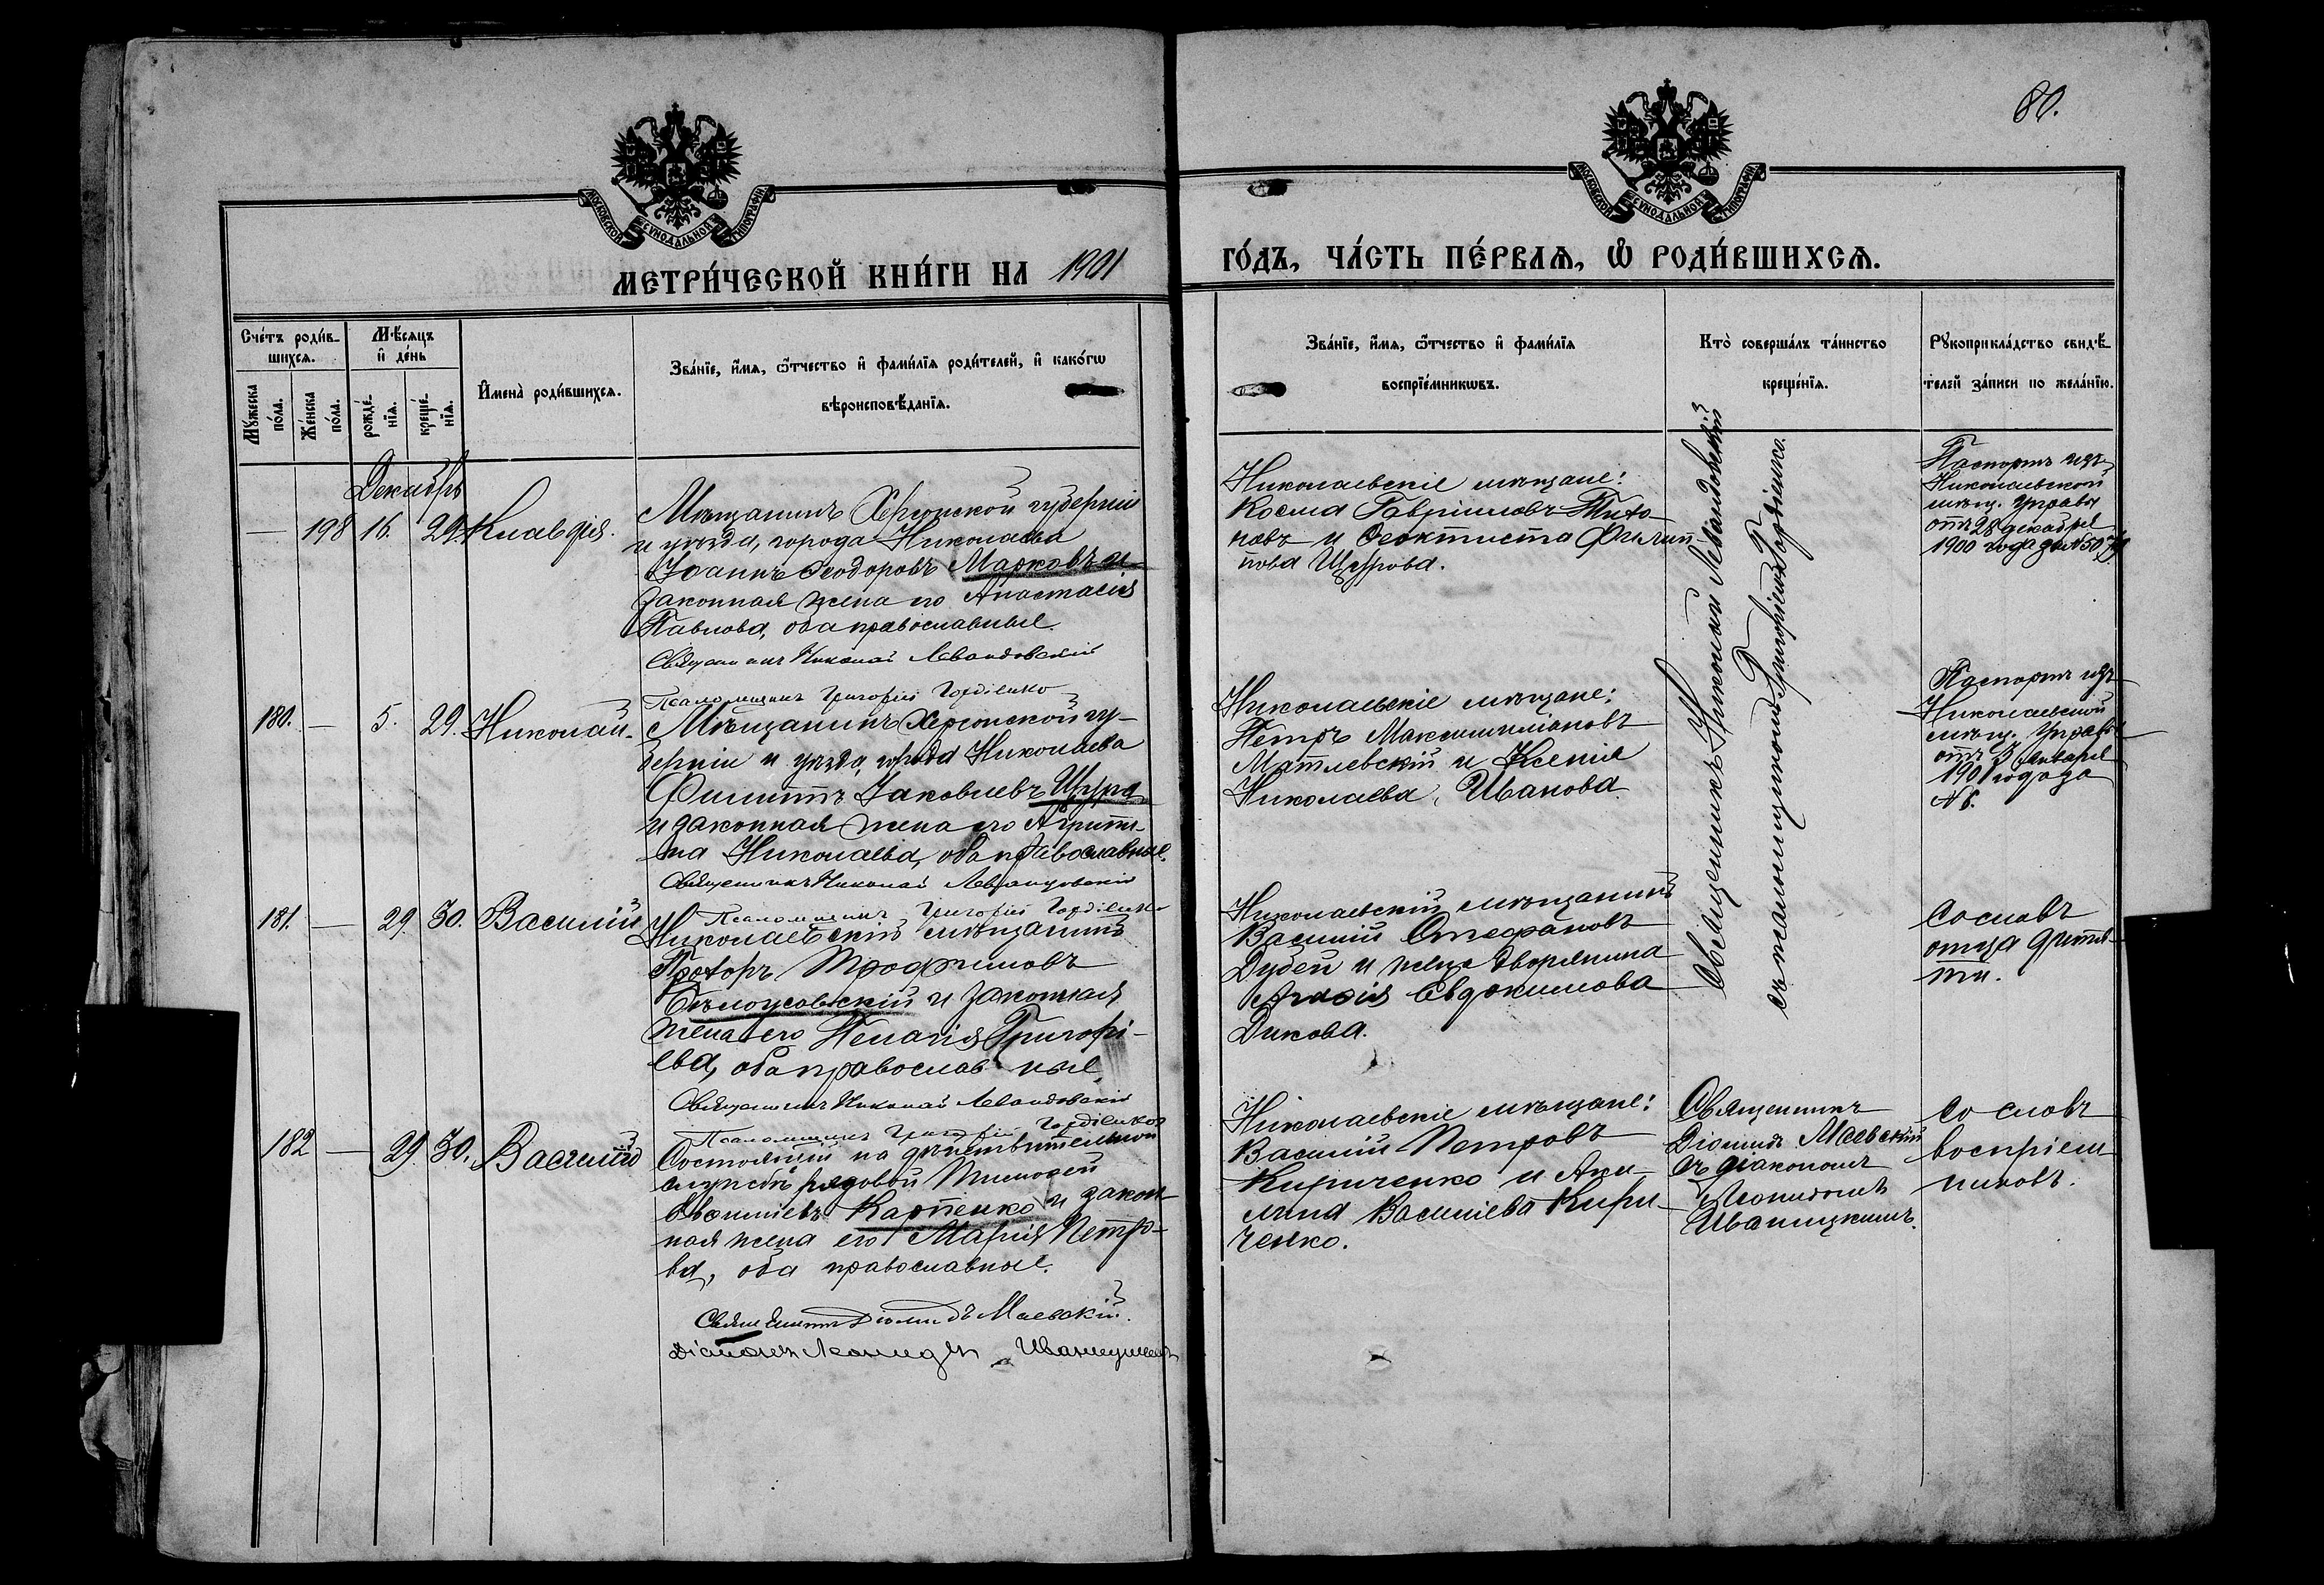 80.
МОСКОВСКОЙ СѴНОДАЛЬНОЙ ТИПОГРАФІИ
МОСКОВСКОЙ СѴНОДАЛЬНОЙ ТИПОГРАФІИ
МЕТРИ́ЧЕСКОЙ КНИ́ГИ НА 1901
ГО́ДЪ, ЧА́СТЬ ПЕ́РВАѦ, Ѡ҆ РОДИ́ВШИХСѦ.
Сче́тъ роди́в-
шихсѧ.
Мꙋ́жеска
по́ла.
Же́нска
по́ла.
Мѣ́сѧцъ
и҆ де́нь
рожде́-
нїѧ.
креще́-
нїѧ.
И҆мена̀ роди́вшихсѧ.
Зва́нїе, и҆́мѧ, ѻ҆́тчество и҆ фами́лїѧ роди́телей, и҆ како́гѡ
вѣроисповѣ́данїѧ.
Зва́нїе, и҆́мѧ, ѻ҆́тчество и҆ фами́лїѧ
воспрїе́мникѡвъ.
Кто̀ соверша́лъ та́инство
креще́нїѧ.
Рꙋкоприкла́дство свидѣ́-
телей за́писи по жела́нїю.
Декабрь
— 198 16. 29. Клавдія.
Мѣщанинъ Херсонской губерніи
и уѣзда, города Николаева
Іоаннъ Ѳеодоровъ Марковъ и
законная жена его Анастасія
Павлова, оба православные.
Священникъ Николай Левандовскій
Псаломщикъ Григорій Гордіенко
Николаевскіе мѣщане:
Косма Гавріиловъ Тихо-
новъ и Ѳеоктиста Филип-
пова Щурова.
Священникъ Николай Левандовскій
съ псаломщикомъ Григоріемъ Гордіенко.
Паспортъ изъ
Николаевской
мѣщ. Управы
отъ 28 декабря
1900 года за №
180. — 5. 29. Николай.
Мѣщанинъ Херсонской гу-
берніи и уѣзда, города Николаева
Филиппъ Іаковлевъ Щура
и законная жена его Агриппи-
на Николаева, оба православные.
Священникъ Николай Левандовскій
Псаломщикъ Григорій Гордіенко
Николаевскіе мѣщане:
Петръ Максимиліановъ
Матлевскій и Ксенія
Николаева Иванова
Паспортъ изъ
Николаевской
мѣщ. Управы
отъ 3 января
1901 года за
№ 8.
181. — 29 30. Василій
Николаевскій мѣщанинъ
Прохоръ Трофимовъ
Бѣлоусовскій и законная
жена его Пелагія Григорі-
ева, оба православные.
Священникъ Николай Левандовскій
Псаломщикъ Григорій Гордіенко
Николаевскій мѣщанинъ
Василій Стефановъ
Дубей и жена дворянина
Евдокимова
Дикова.
Со словъ
отца дитя-
ти.
182 — 29. 30. Василій
Состоящій на дѣйствительной
службѣ рядовой Тимоѳей
Карпенко и закон-
ная жена его Марія Петро-
ва, оба православные.
Священникъ Діомидъ Маевскій.
Діаконъ Леонидъ Иваницкій
Николаевскіе мѣщане:
Василій Петровъ
Кириченко и Аки-
лина Васильева Кири-
ченко.
Священникъ
Діомидъ Маевскій
съ діакономъ
Леонидомъ
Иваницкимъ.
Со словъ
воспріем-
никовъ.